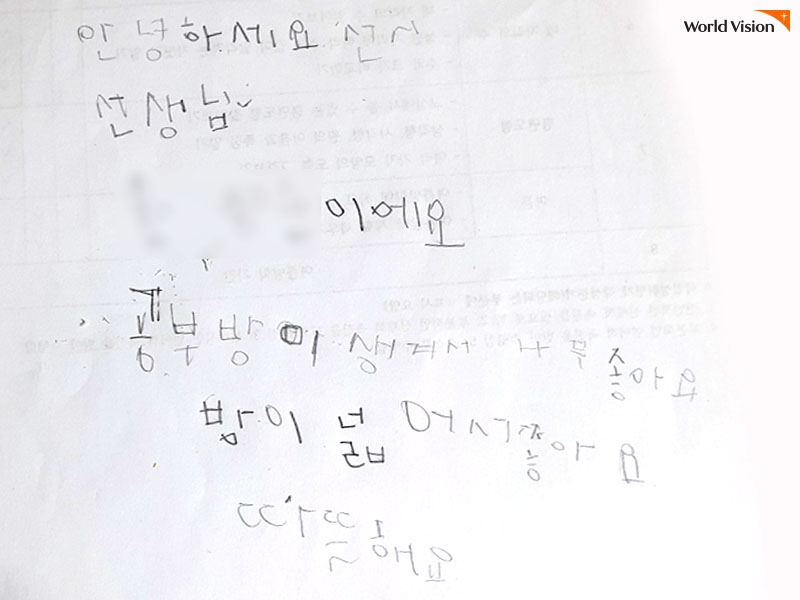 World Vision
안녕하세요 선
선생님
이에요
공부방이 생겨서 너무 좋아요
방이 넓어서좋아요
따뜻해요